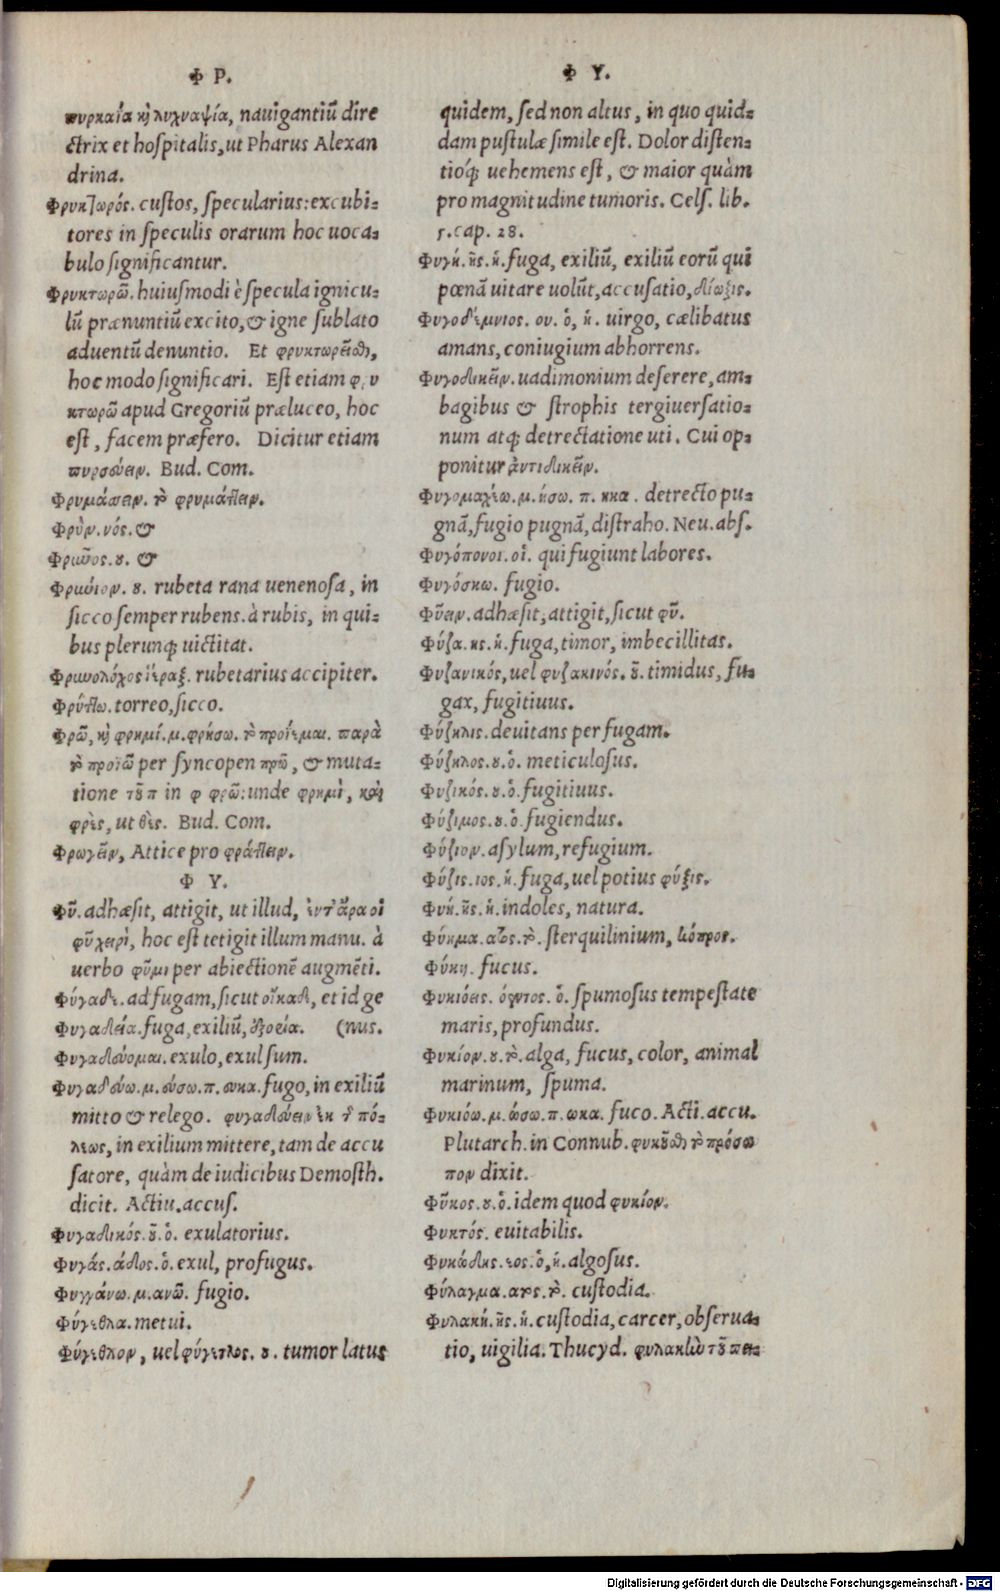 Φ Ρ.
πυρκαϊὰ κὴ λυχναψία, nauigantiũ dire
ctrix et hospitalis, ut Pharus Alexan
drina.
Φρυκτωρός. custos, specularius: excubi-
tores in speculis orarum hoc uoca-
bulo significantur.
Φρυκτωρῶ. huiusmodi è specula ignicu-
lũ prænuntiũ excito, & igne sublato
aduentũ denuntio. Et φρυκτωρεῖσθαι,
hoc modo significari. Est etiam φρυ
κτωρῶ apud Gregoriũ præluceo, hoc
est, facem præfero. Dicitur etiam
πυρσεύειν. Bud. Com.
Φρυμάσσειν. τὸ φρυμάττειν.
Φρὺν. νός. &
Φρῦνος. ου. &
Φρύνιον. ου. rubeta rana uenenosa, in
sicco semper rubens. à rubis, in qui-
bus plerunq; uictitat.
Φρυνολόχος ἱέραξ. rubetarius accipiter.
Φρύττω. torreo, sicco.
Φρῶ, καὶ φρημί. μ. φρήσω. τὸ προΐεμαι. παρὰ
τὸ προϊῶ per syncopen πρῶ, & muta-
tione τοῦ π in φ φρῶ: unde φρημὶ, καὶ
φρὲς, ut θὲς. Bud. Com.
Φρωγεῖν, Attice pro φράττειν.
Φ Υ.
Φῦ. adhæsit, attigit, ut illud, ἐν τ' ἄρα οἱ
φῦ χειρὶ, hoc est tetigit illum manu. à
uerbo φῦμι per abiectionẽ augmẽti.
Φύγαδε. ad fugam, sicut οἴκαδε, et id ge
Φυγαδεία. fuga, exiliũ, ἐξορία. (nus.
Φυγαδεύομαι. exulo, exul sum.
Φυγαδεύω. μ. εύσω. π. ευκα. fugo, in exiliũ
mitto & relego. φυγαδεύειν ἐκ τῆς πό-
λεως, in exilium mittere, tam de accu
satore, quàm de iudicibus Demosth.
dicit. Actiu. accus.
Φυγαδικός. οῦ. ὁ. exulatorius.
Φυγάς. άδος. ὁ. exul, profugus.
Φυγγάνω. μ. ανῶ. fugio.
Φύγεθλα. metui.
Φύγεθλον, uel φύγετλος. ου. tumor latus
Φ Υ.
quidem, sed non altus, in quo quid-
dam pustulæ simile est. Dolor disten-
tióq; uehemens est, & maior quàm
pro magnitudine tumoris. Cels. lib.
5. cap. 28.
Φυγή. ῆς. ἡ. fuga, exiliũ, exiliũ eorũ qui
pœnã uitare uolũt, accusatio, δίωξις.
Φυγοδέμνιος. ου. ὁ, ἡ. uirgo, cælibatus
amans, coniugium abhorrens.
Φυγοδικεῖν. uadimonium deserere, am-
bagibus & strophis tergiuersatio-
num atq; detrectatione uti. Cui op-
ponitur ἀντιδικεῖν.
Φυγομαχέω. μ. ήσω. π. ηκα. detrecto pu-
gnã, fugio pugnã, distraho. Neu. abs.
Φυγόπονοι. οἱ. qui fugiunt labores.
Φυγόσκω. fugio.
Φῦειν. adhæsit, attigit, sicut φῦ.
Φύζα. ης. ἡ. fuga, timor, imbecillitas.
Φυζανικός, uel φυζακινός. οῦ. timidus, fu-
gax, fugitiuus.
Φύζηλις. deuitans per fugam.
Φύζηλος. ου. ὁ. meticulosus.
Φυζικός. ου. ὁ. fugitiuus.
Φύζιμος. ου. ὁ. fugiendus.
Φύζιον. asylum, refugium.
Φύζις. ιος. ἡ. fuga, uel potius φύξις.
Φυή. ῆς. ἡ. indoles, natura.
Φύημα. ατος. τὸ. sterquilinium, κόπρος.
Φύκη. fucus.
Φυκιόεις. όεντος. ὁ. spumosus tempestate
maris, profundus.
Φυκίον. ου. τὸ. alga, fucus, color, animal
marinum, spuma.
Φυκιόω. μ. ώσω. π. ωκα. fuco. Acti. accu.
Plutarch. in Connub. φυκοῦσθαι τὸ πρόσω
πον dixit.
Φῦκος. ου. ὁ. idem quod φυκίον.
Φυκτός. euitabilis.
Φυκώδης. εος. ὁ, ἡ. algosus.
Φύλαγμα. ατος. τὸ. custodia.
Φυλακή. ῆς. ἡ. custodia, carcer, obserua-
tio, uigilia. Thucyd. φυλακὴν τοῦ πει-
Digitalisierung gefördert durch die Deutsche Forschungsgemeinschaft - DFG